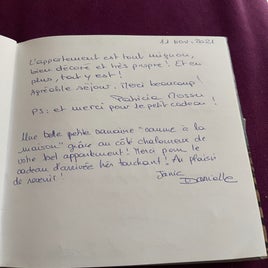 11 NOV. 2021
L'appartement est tout mignon,
bien décoré et très propre! Et en
plus, tout y est!
Agréable séjour. Merci beaucoup!
Patricia
PS: et merci pour le petit cadeau!
Une belle petite semaine "comme à la
maison" grâce au côté chaleureux de
votre bel appartement! Merci pour le
cadeau d'arrivée très touchant! Au plaisir
de revenir!
Danielle